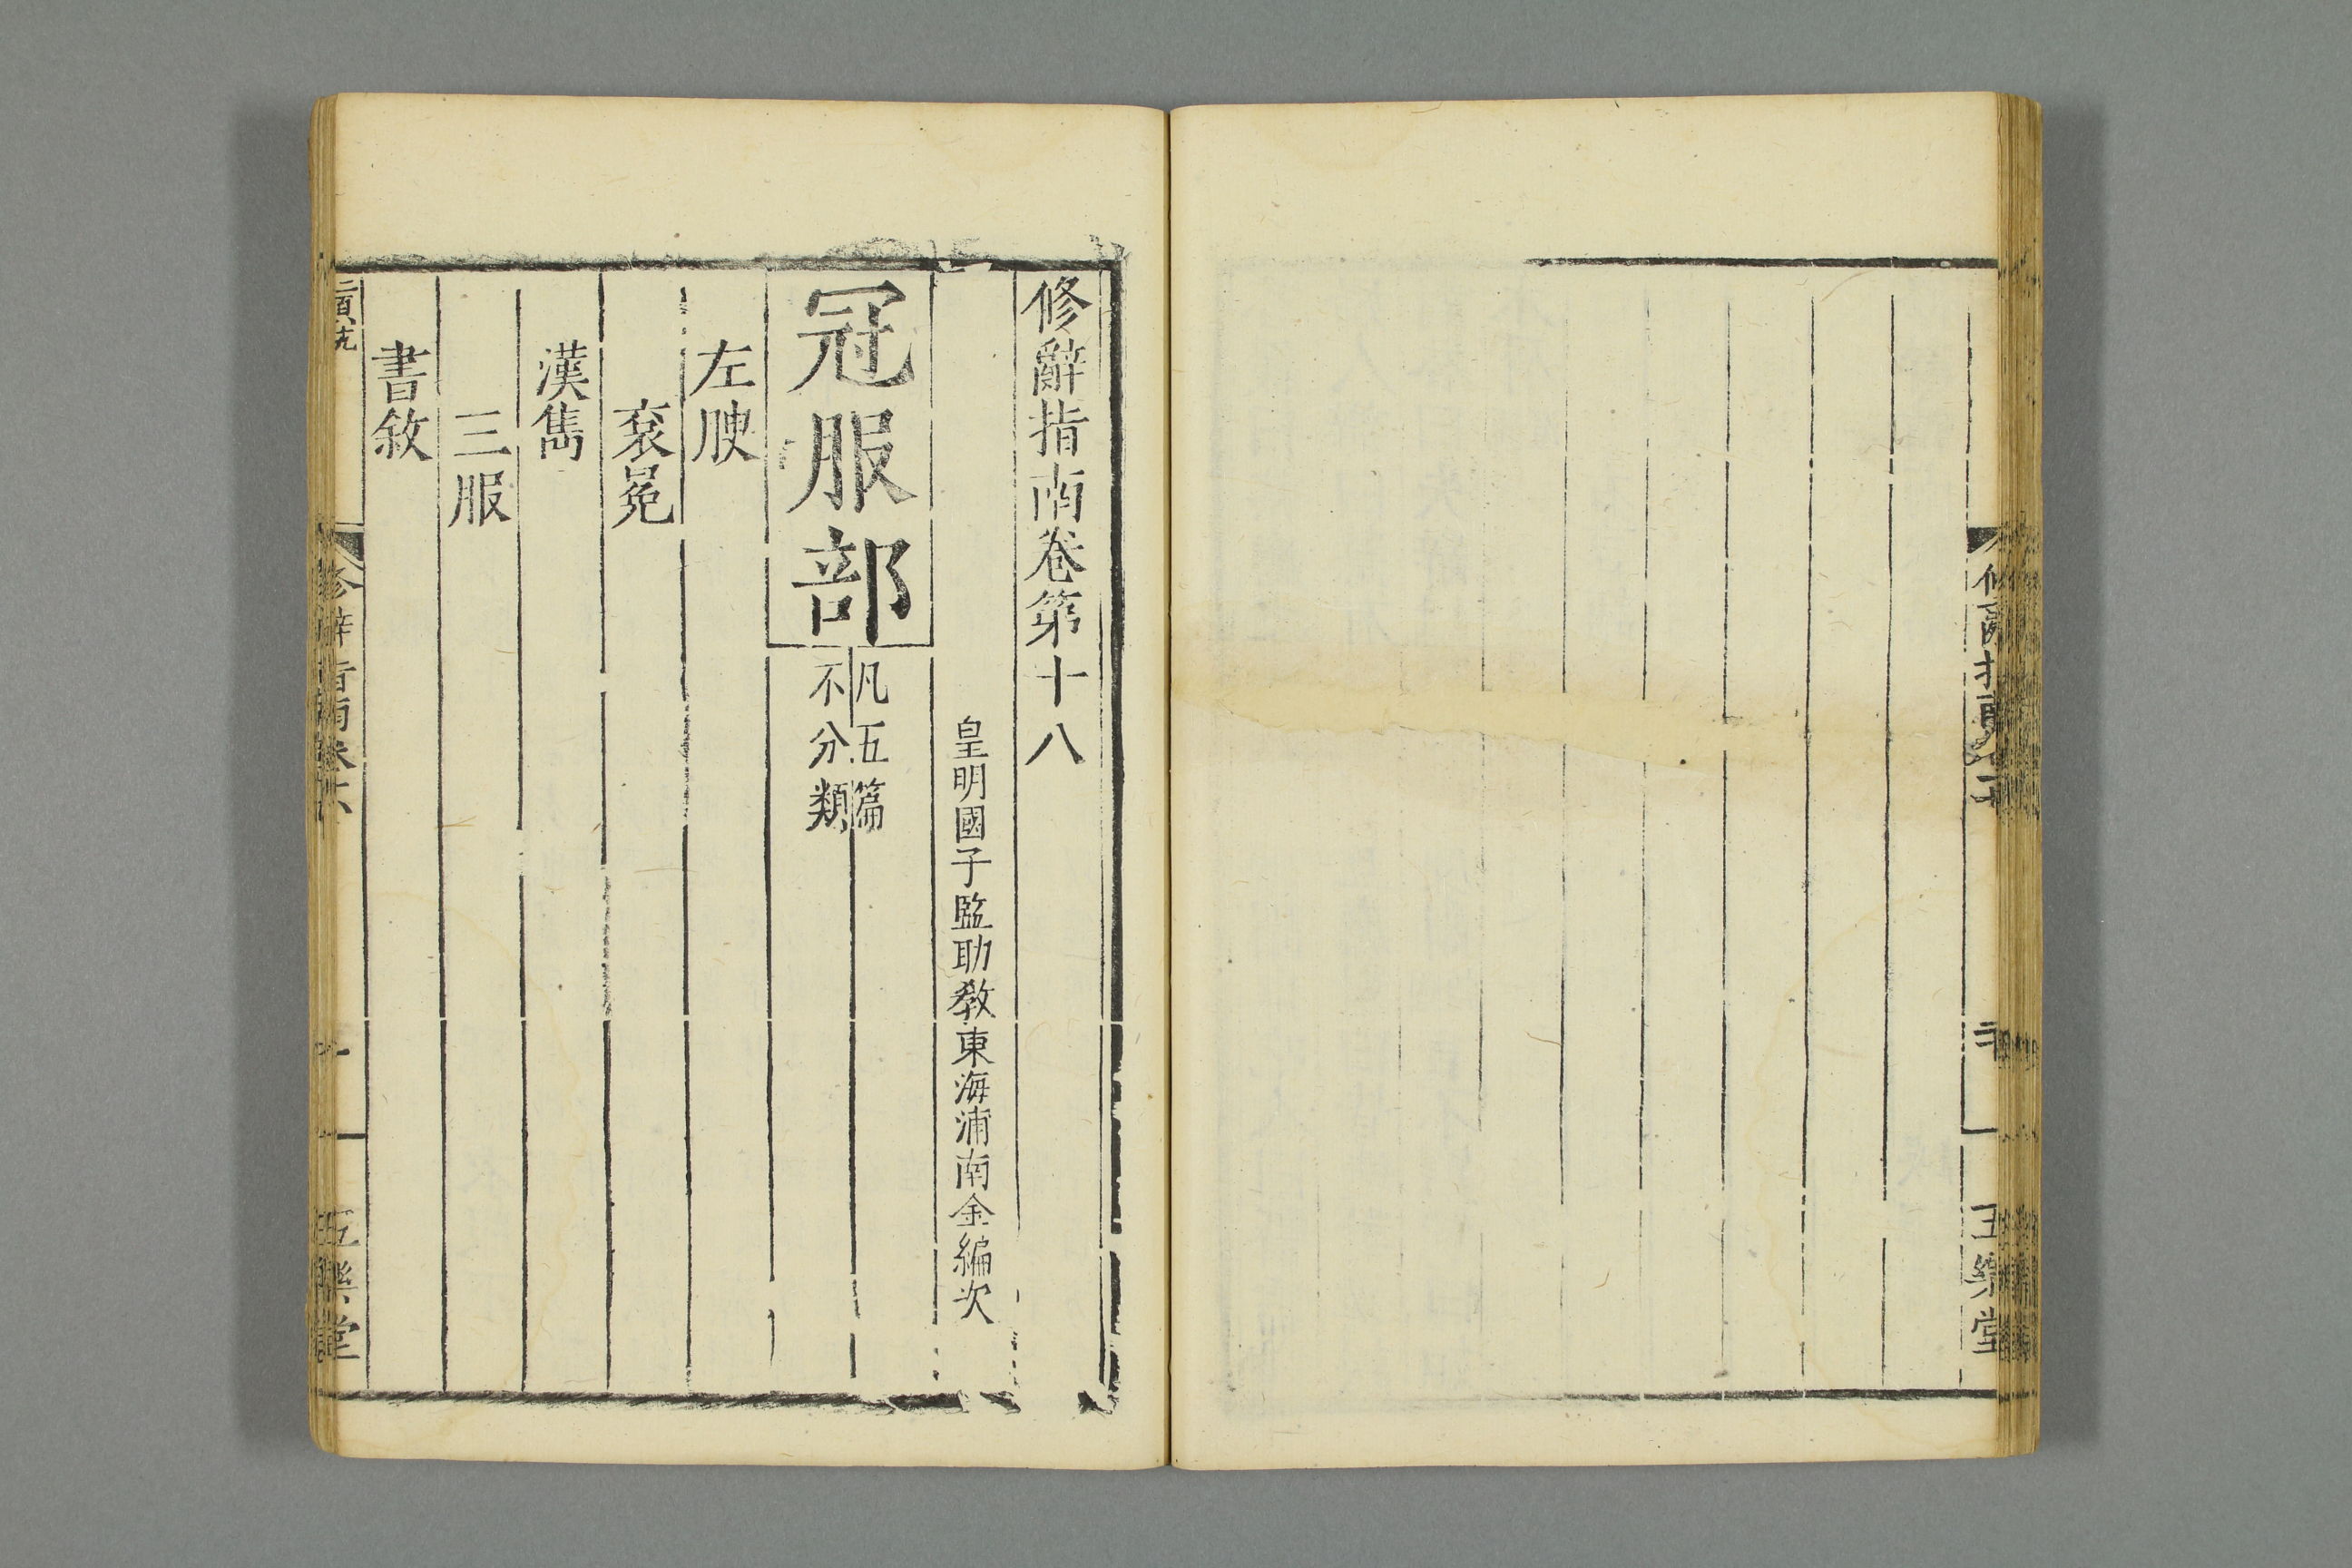 五樂堂
修辭指南卷第十八
皇明國子監助教東海浦南金編次
冠服部
凡五篇
不分類
左腴
袞冕
漢雋
三服
書敘
修辭指南卷十八
五樂堂